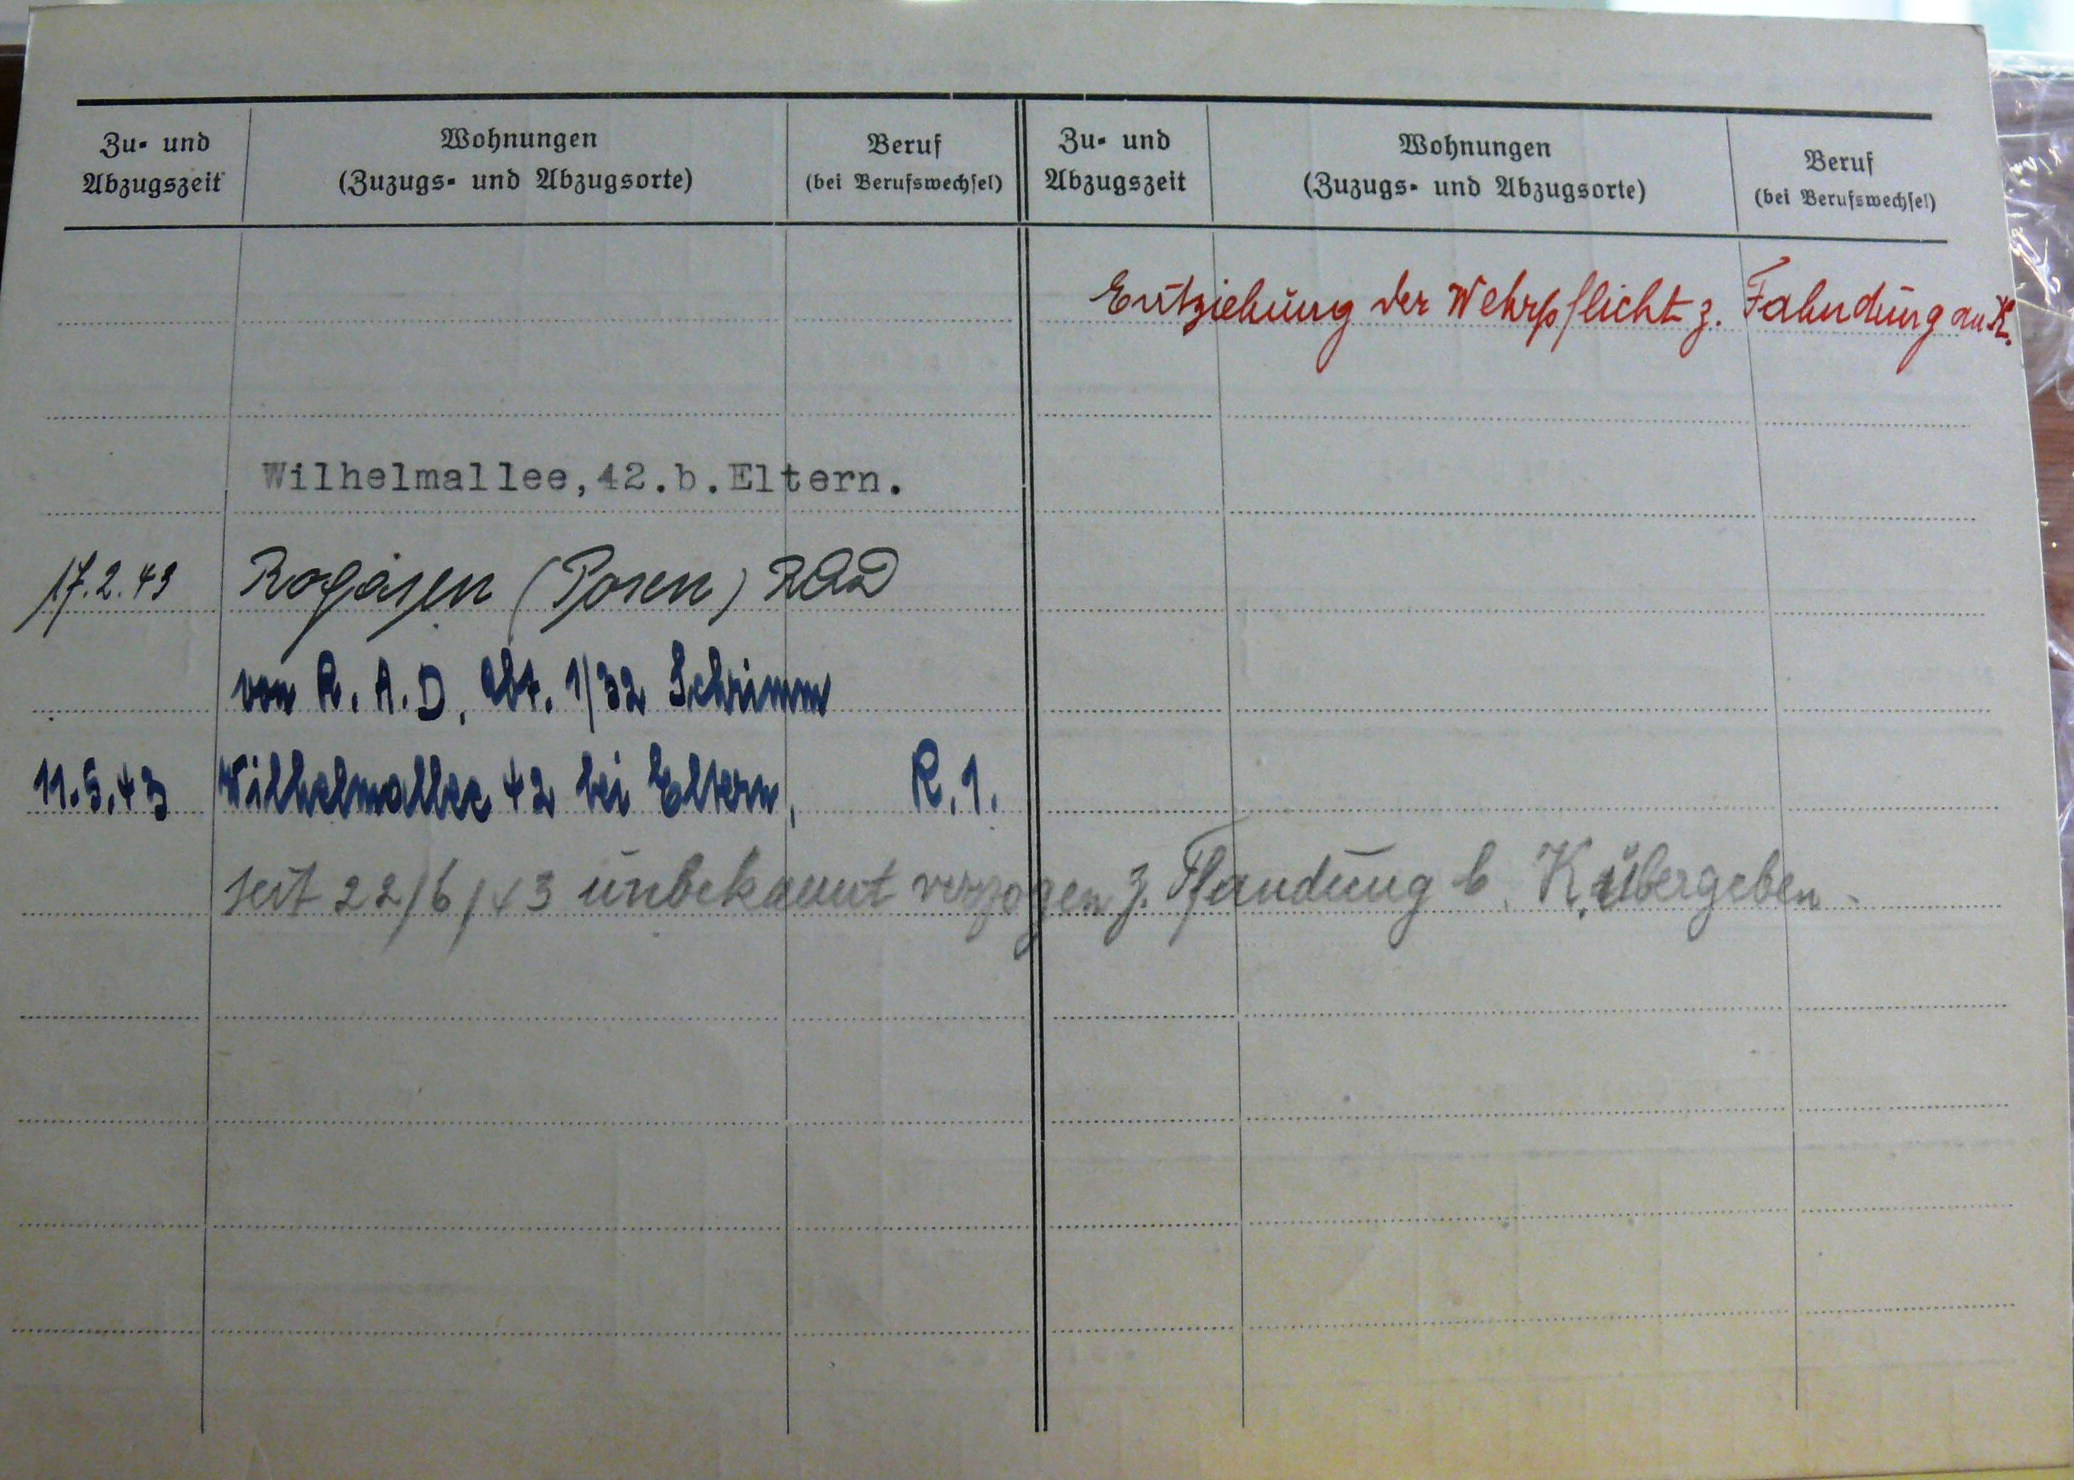 Zu- und Abzugszeit
Wohnungen (Zuzugs- und Abzugsorte)
Beruf (bei Berufswechsel)
Zu- und Abzugszeit
Wohnungen (Zuzugs- und Abzugsorte)
Beruf (bei Berufswechsel)
Entziehung der Wehrpflicht z. Fahndung an K.
Wilhelmallee,42.b.Eltern.
17.2.43 Rogasen (Posen) RAD
von R.A.D. Abt. 1/32 Schrimm
11.5.43 Wilhelmallee 42 bei Eltern, R.1.
seit 22/6/43 unbekannt verzogen z. Fhandung b. K. übergeben.